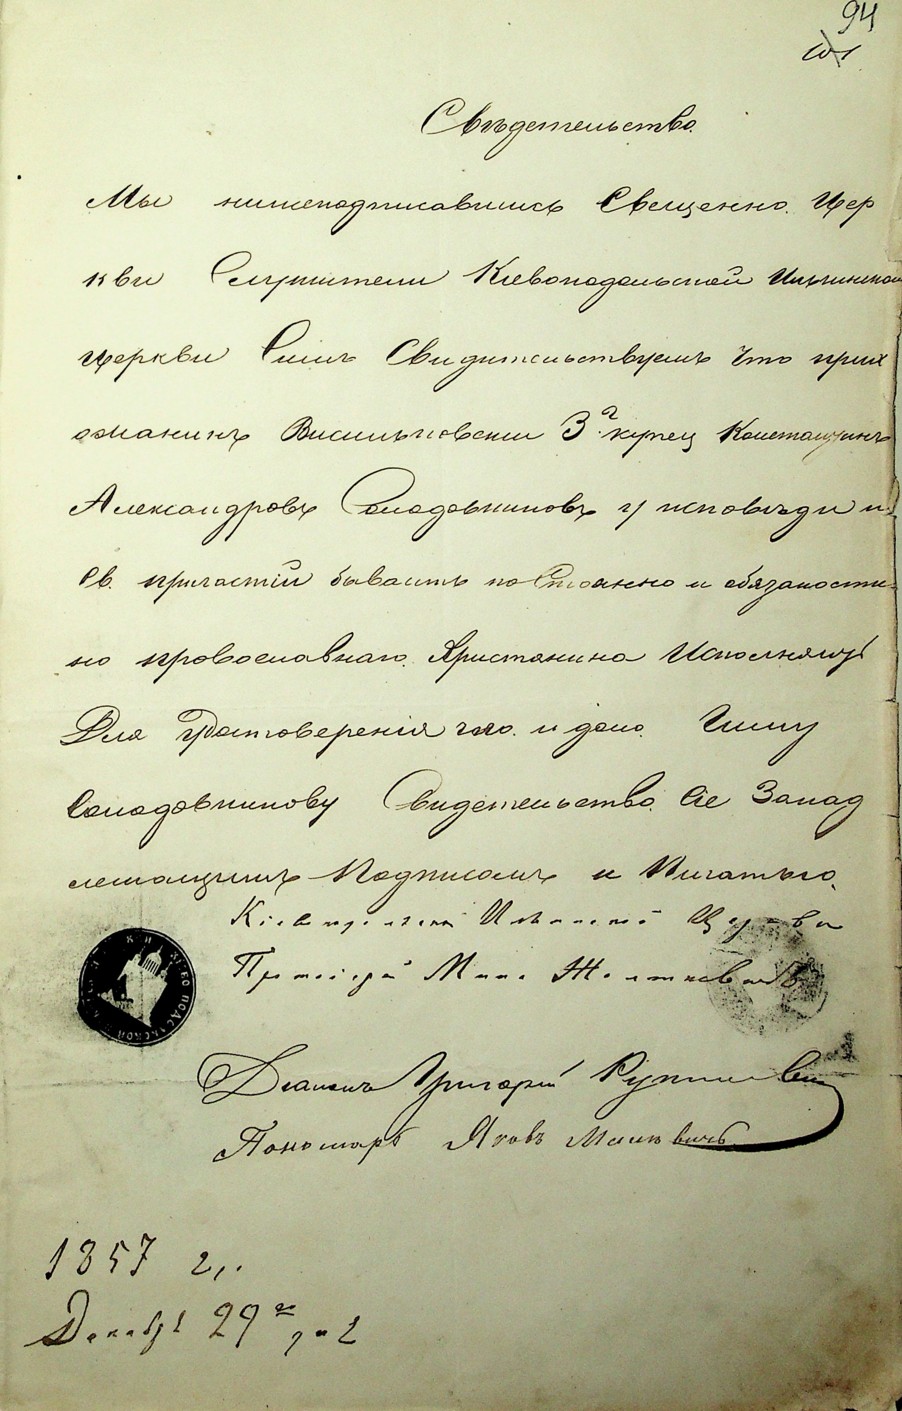 94
101
Свѣдетельство.
Мы нижеподписавшись Свещенно. Цер
кви Служители Кіевоподольской Ильинской
церкви Симъ Свидительствуемъ что прих
ожанинъ Васильковскии 3й купец Констанцинъ
Александровъ Соладовниковъ у исповѣди и
св. причастій бываитъ поСтоянно и обязаности
но провославнаго. Христянина Исполняитъ
Для Удостоверенія чего. и дано. Симу
Соладовникову Свидетельство. Сіе Занад
лежащимъ Подписомъ и Пичатью.
Кіевоподольской Ильинской Церкви
Протоіерей Желтоножскій
Діаконъ Григорий
Пономарь Яковъ
1857 г.
Декабря 29го дня